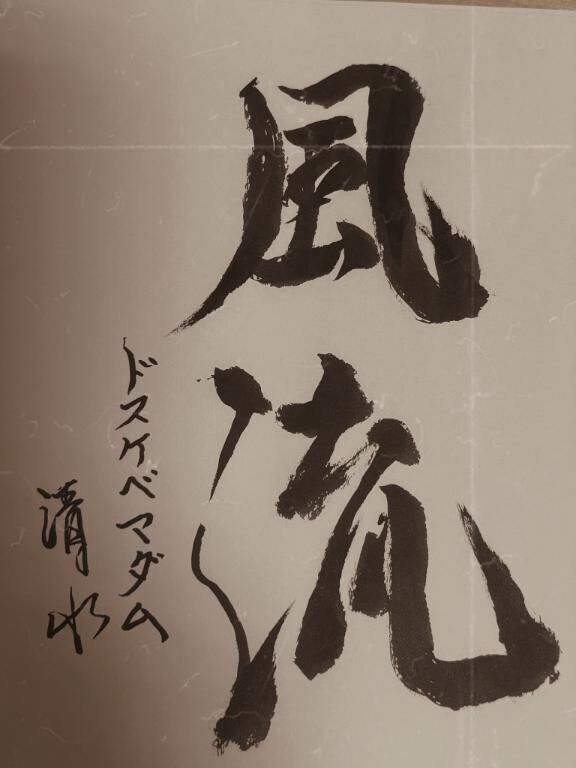 風流
ドスケベマダム
清水